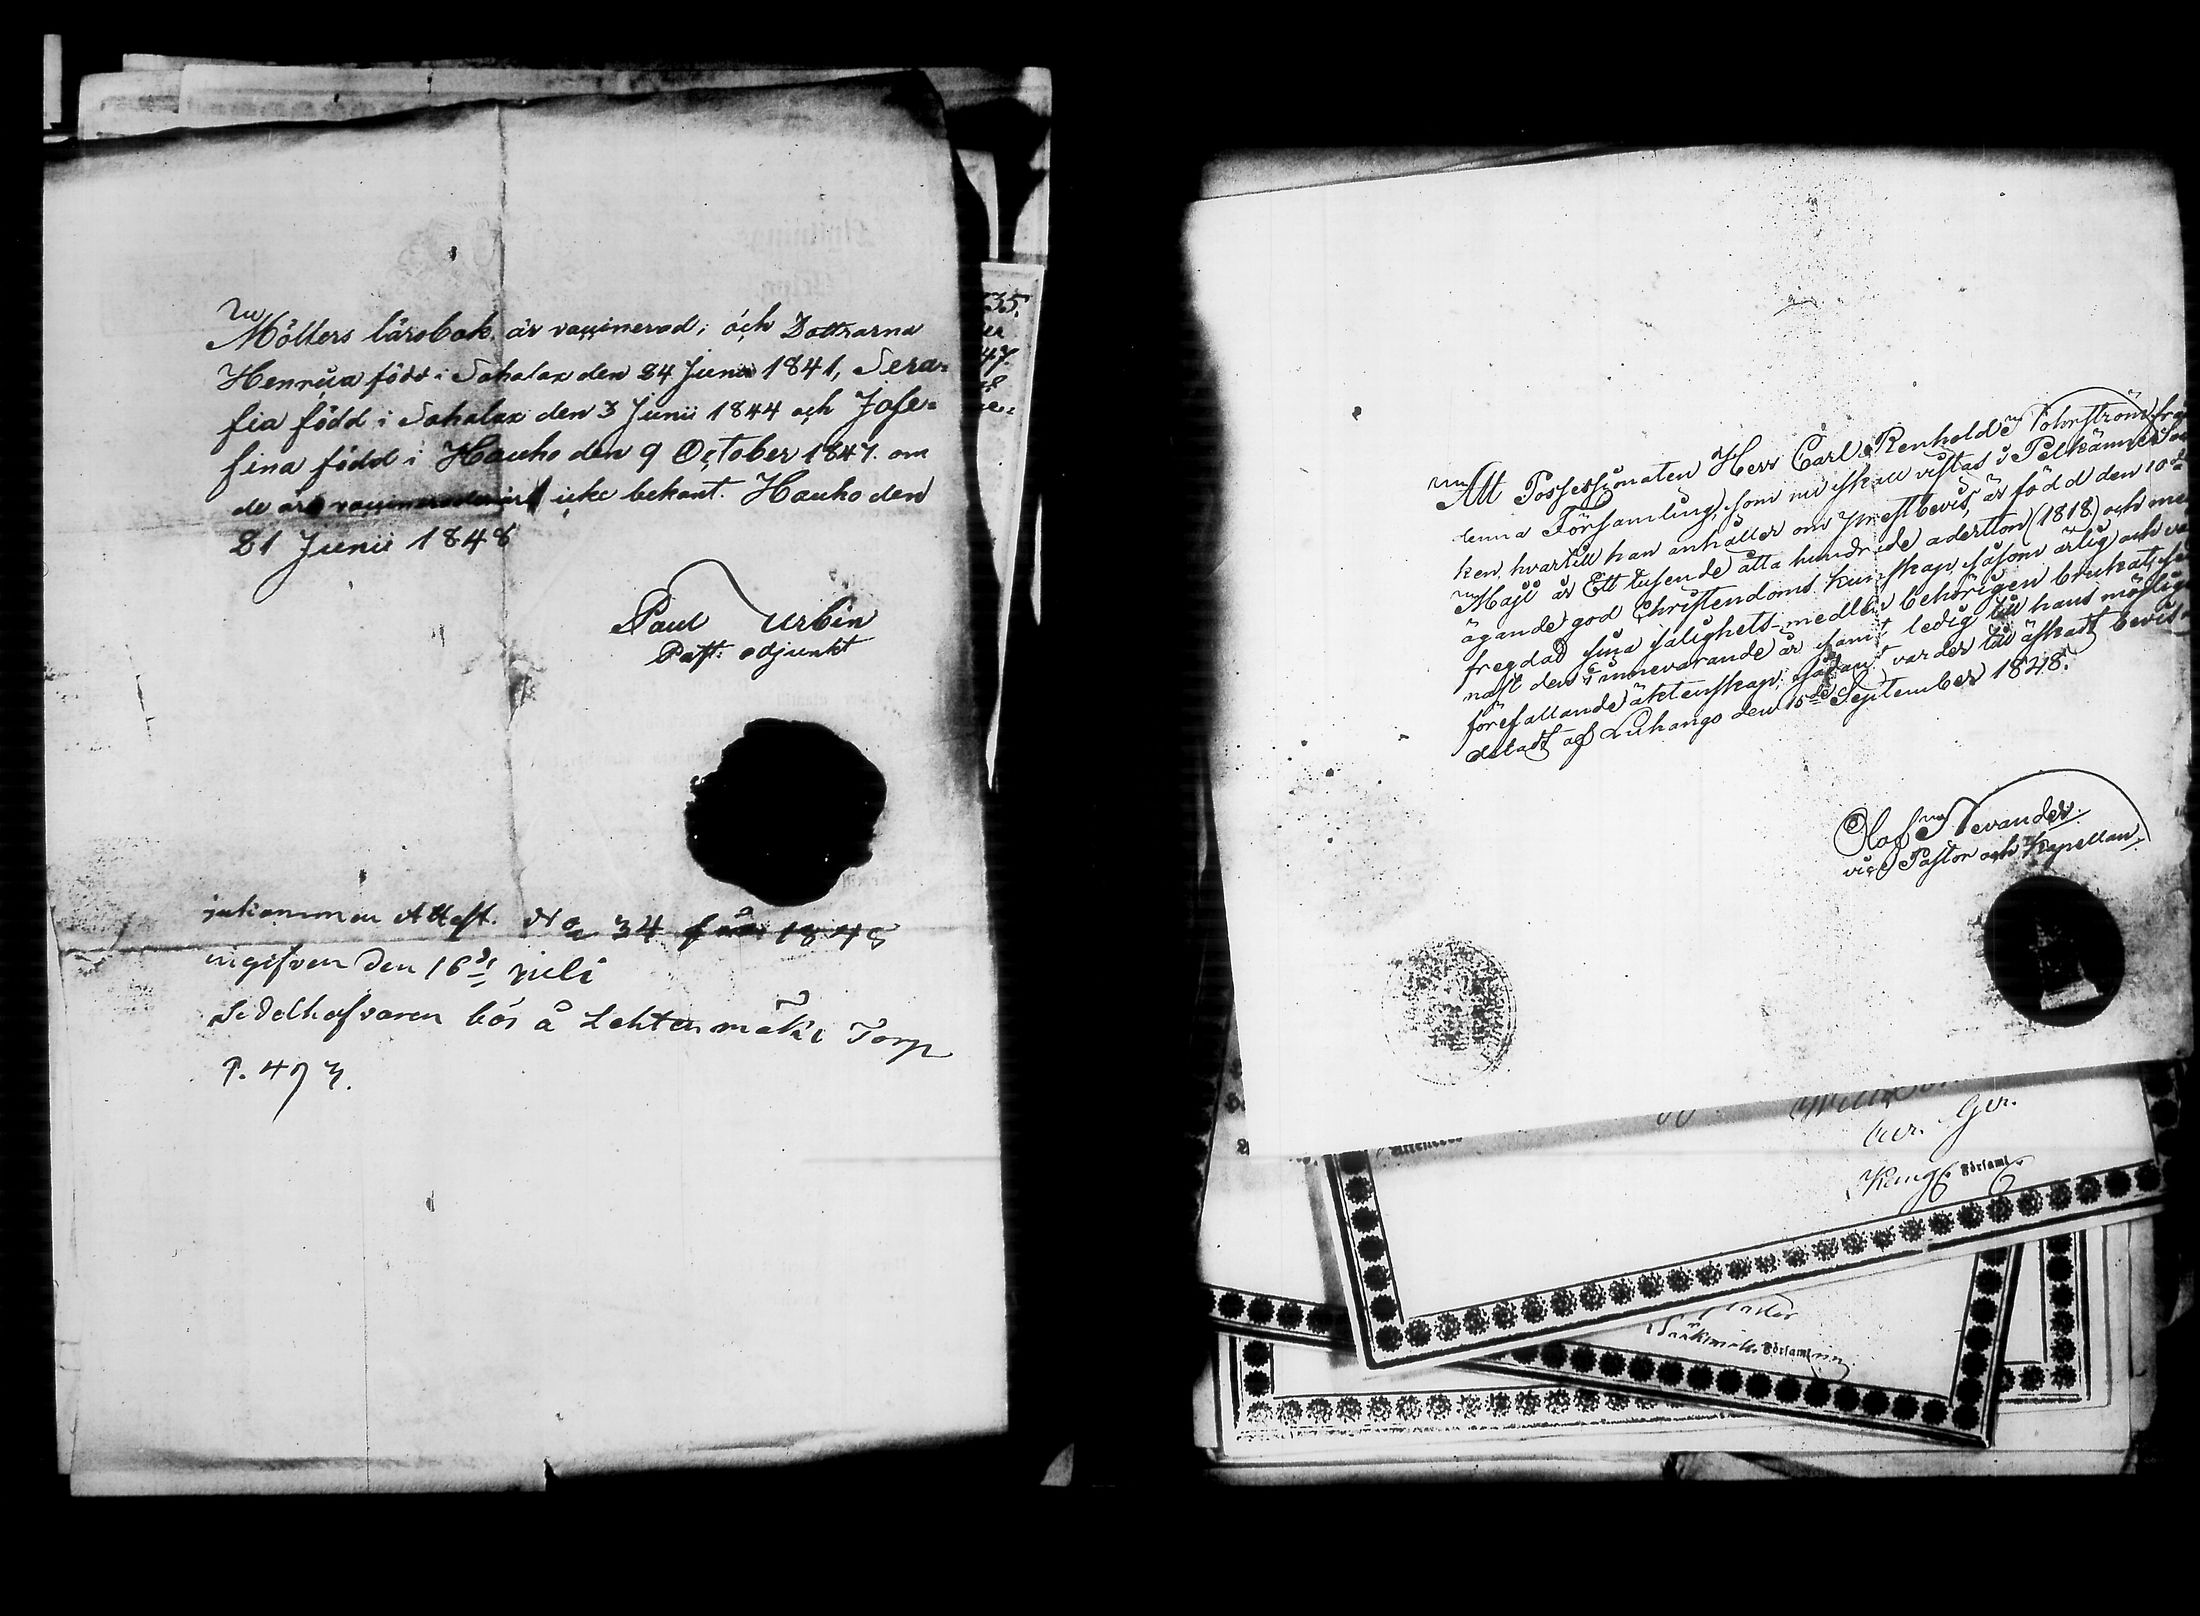 Möllers lärobok, är vaccinerad; och Döttrarna
Henrica född i Sahalax den 24 Junii 1841, Sera-
fia född i Sahalax den 3 Junii 1844 och Jose-
fina född i Hauho den 9 October 1847. om
de äro vaccinerade är icke bekant. Hauho den
21 Junii 1848
Paul Urbin
Past. adjunkt
inkommen Attest. No 34 från 1848
ingifven den 16de juli
Sedelhafvaren bor å Lehtenmäki Torp
P. 473.
35.
47.
Att Possessionaten Herr Carl Renhold Tohrström från
denna Församling, som nu skall vistas i Pelkänne Soc
ken, hvartill han anhåller om prestbevis, är född den 10de
Maji år Ett tusende åtta hundrade aderton (1818) och med
ägande god Christendoms kunskap, såsom ärlig och
fregdad sina salighets-medler behörigen brukat,
näst den innevarande år samt ledig till hans möjligen
förefallande äktenskap; sådant varder till äskadt bevis
deladt af Luhango den 15de September 1848.
Olof Nevander
vice Pastor och Kapellan.
ver. Ger.
Församl.
Församling